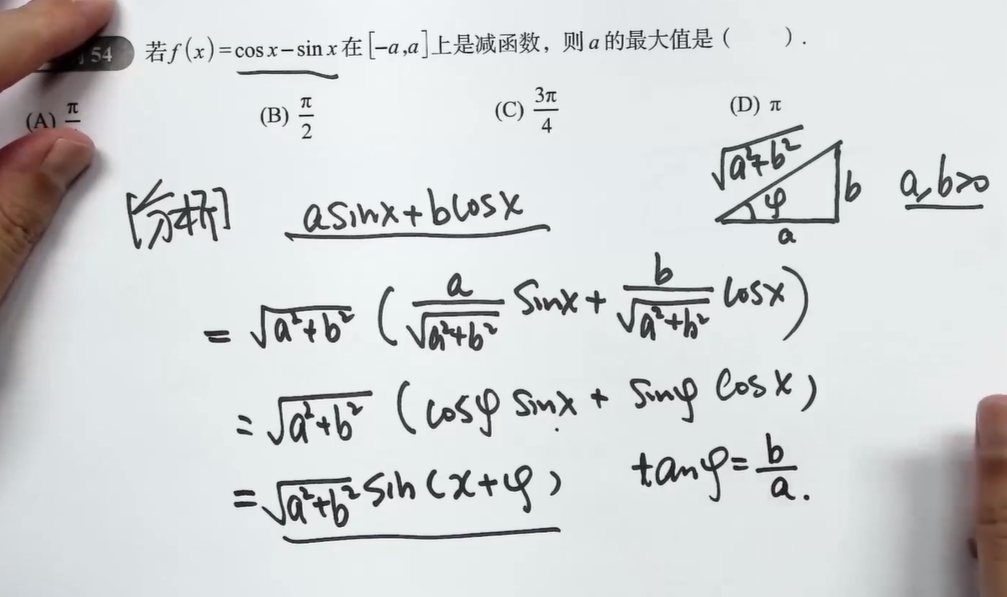 54 若f(x)=cosx-sinx在[-a,a]上是减函数，则a的最大值是（ ）.
(A) π (B) π/2 (C) 3π/4 (D) π
[分析] asinx+bcosx √(a²+b²) φ b a a,b>0
=√(a²+b²) (a/√(a²+b²) sinx + b/√(a²+b²) cosx)
=√(a²+b²) (cosφ sinx + sinφ cosx)
=√(a²+b²) sin(x+φ) tanφ=b/a.